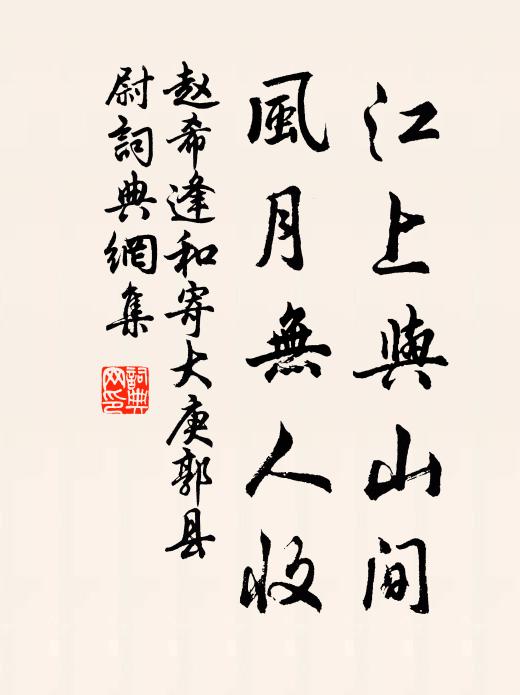 江上與山间
風月無人收
赵希逢和寄大庾郭县
尉詞典網集